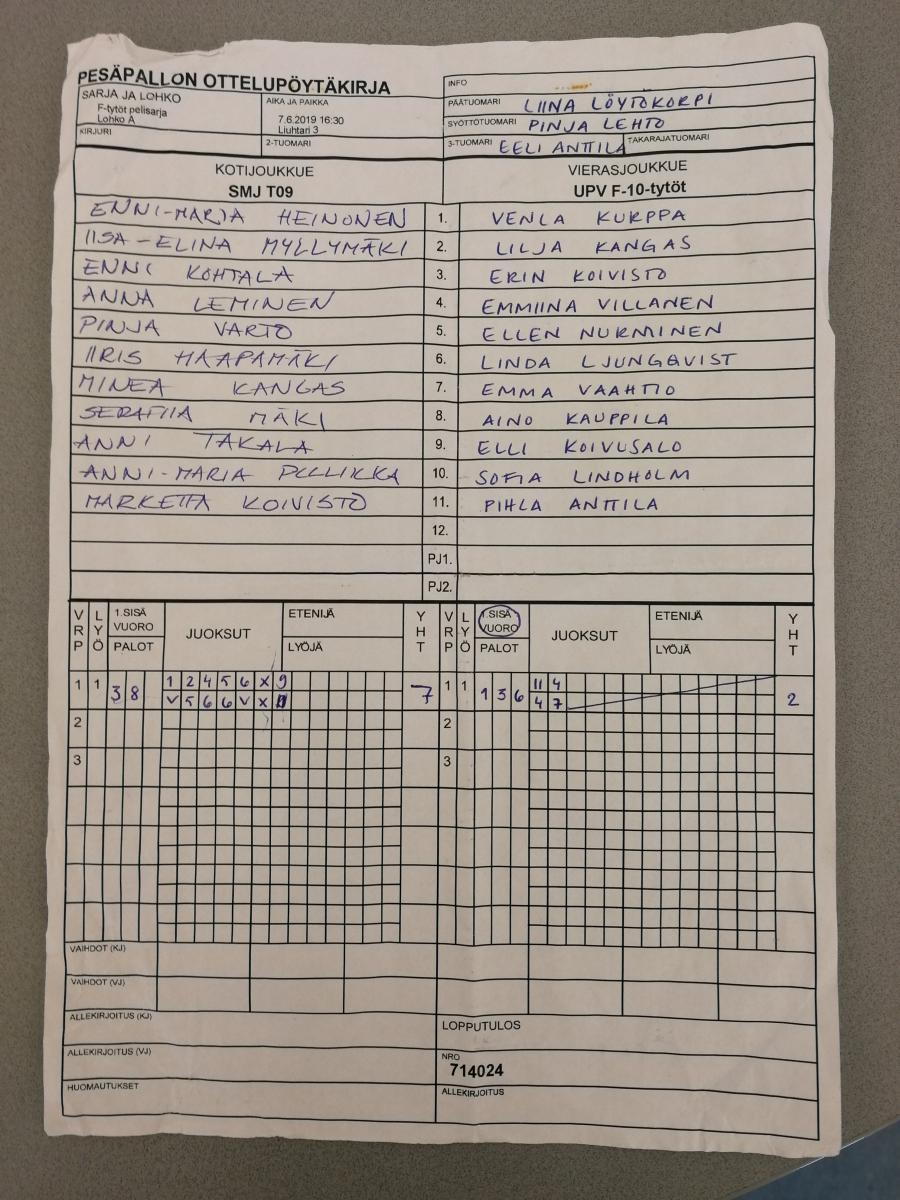 PESÄPALLON OTTELUPÖYTÄKIRJA
SARJA JA LOHKO
F-tytöt pelisarja
Lohko A
AIKA JA PAIKKA
7.6.2019 16:30
Liuhtari 3
KIRJURI
2-TUOMARI
INFO
PÄÄTUOMARI LIINA LÖYTÖKORPI
SYÖTTÖTUOMARI PINJA LEHTO
3-TUOMARI EELI ANTTILA TAKARAJATUOMARI
KOTIJOUKKUE VIERASJOUKKUE
SMJ T09 UPV F-10-tytöt
ENNI-MARJA HEINONEN 1. VENLA KURPPA
IISA-ELINA MYLLYMÄKI 2. LILJA KANGAS
ENNI KOHTALA 3. ERIN KOIVISTO
ANNA LEMINEN 4. EMMIINA VILLANEN
PINJA VARTO 5. ELLEN NURMINEN
IIRIS HAAPAMÄKI 6. LINDA LJUNGQVIST
MINEA KANGAS 7. EMMA VAAHTIO
SERAFIIA MÄKI 8. AINO KAUPPILA
ANNI TAKALA 9. ELLI KOIVUSALO
ANNI-MARIA PULLIKKA 10. SOFIA LINDHOLM
MARKETTA KOIVISTO 11. PIHLA ANTTILA
12.
PJ1.
PJ2.
VRP LYÖ 1.SISÄ VUORO PALOT JUOKSUT ETENIJÄ LYÖJÄ YHT VRP LYÖ 1.SISÄ VUORO PALOT JUOKSUT ETENIJÄ LYÖJÄ YHT
1 1 3 8 1 2 4 5 6 X 9 7 1 1 1 3 6 11 4 2
V 5 6 6 V X 4 7
2 2
3 3
VAIHDOT (KJ)
VAIHDOT (VJ)
ALLEKIRJOITUS (KJ)
LOPPUTULOS
ALLEKIRJOITUS (VJ)
NRO
714024
HUOMAUTUKSET
ALLEKIRJOITUS